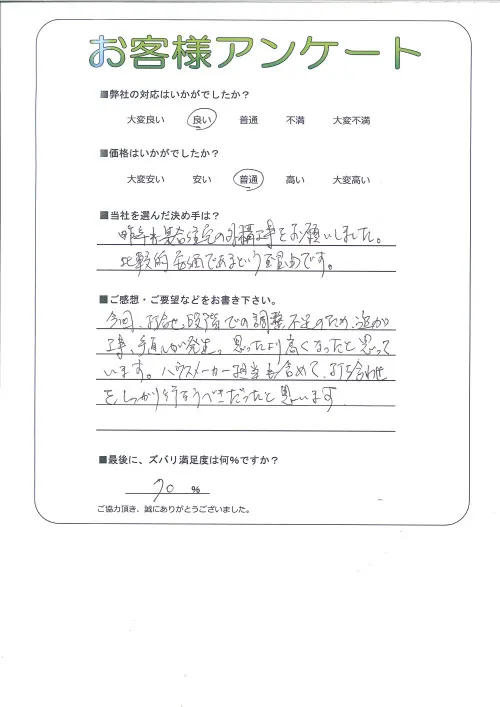 お客様アンケート
■弊社の対応はいかがでしたか？
大変良い 良い 普通 不満 大変不満
■価格はいかがでしたか？
大変安い 安い 普通 高い 大変高い
■当社を選んだ決め手は？
昨年末集合住宅の外構工事をお願いしました。
比較的安価であるという理由です。
■ご感想・ご要望などをお書き下さい。
今回、打合せ段階での調整不足のため、追加
工事、手直しが発生。思ったより高くなったと思って
います。ハウスメーカー担当も含めて、打ち合わせ
をしっかり行うべきだったと思います
■最後に、ズバリ満足度は何％ですか？
70 %
ご協力頂き、誠にありがとうございました。